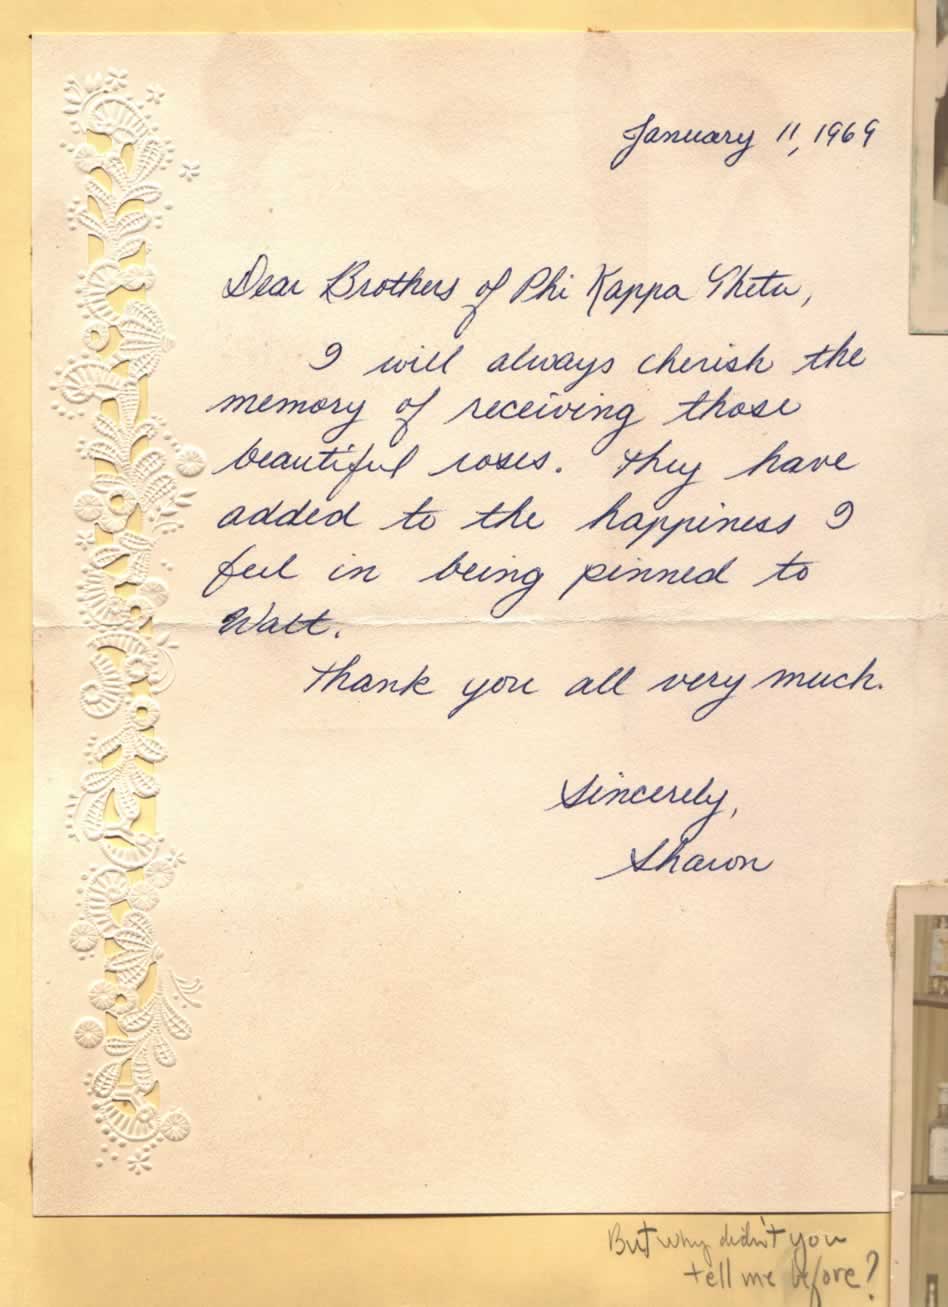 January 11, 1969
Dear Brothers of Phi Kappa Theta,
I will always cherish the
memory of receiving those
beautiful roses. They have
added to the happiness I
feel in being pinned to
Walt.
Thank you all very much.
Sincerely,
Sharon
But why didn't you
tell me before?